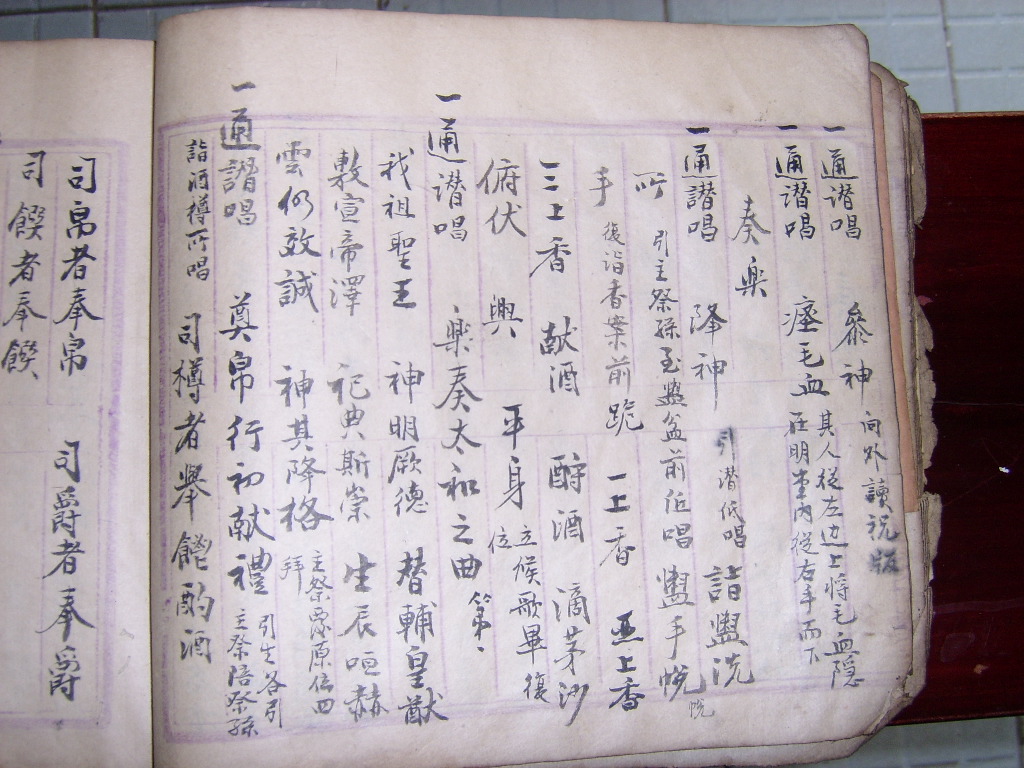 一通譛唱 叅神 向外讀祝版
一通譛唱 瘞毛血 其人從左边上將毛血隠
在明堂内從右手而下
奏楽
一通譛唱 降神 引譛低唱 詣盥洗
所 引主祭孫至盥盆前低唱 盥手 帨
手 復詣香案前 跪 一上香 亜上香
三上香 献酒 酹酒 滴茅沙
俯伏 興 平身 立候歌畢復位
一通譛唱 楽奏太和之曲 第一
我祖聖王 神明厥德 替輔皇猷
敷宣帝澤 祀典斯崇 生辰咺赫
雲仍效誠 神其降格 主祭孫原位四拜
一通譛唱 奠帛行初献禮 引生各引主祭陪祭孫
詣酒樽所唱 司樽者舉 酌酒
司帛者奉帛 司爵者奉爵
司饌者奉饌